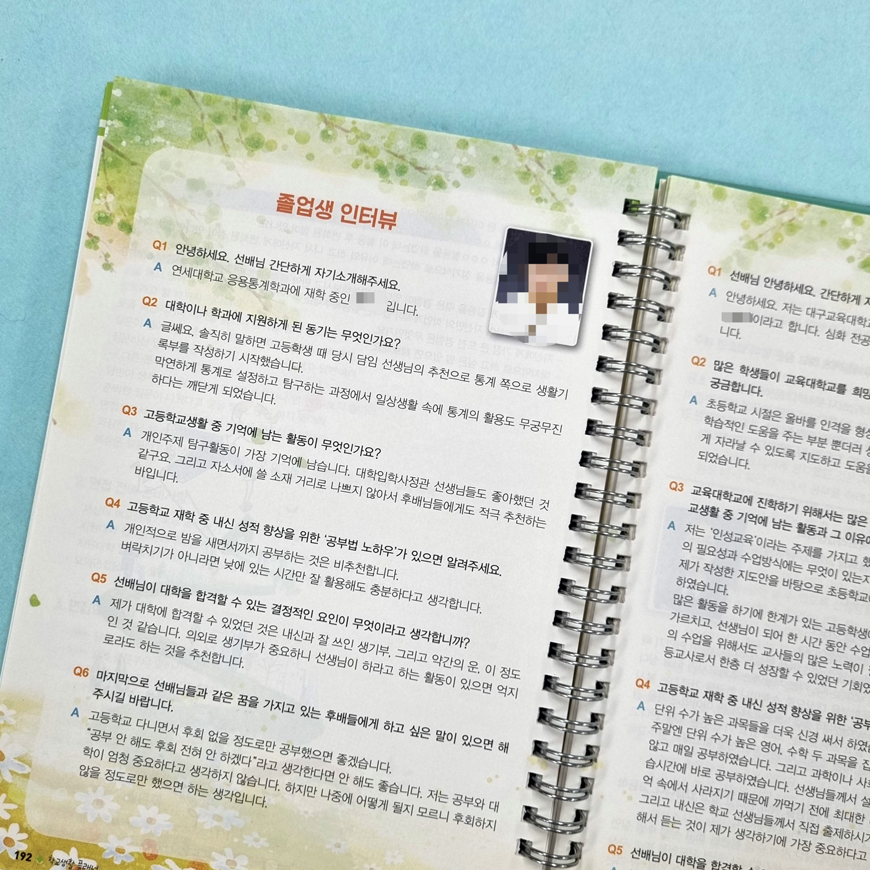 졸업생 인터뷰
Q1 안녕하세요. 선배님 간단하게 자기소개해주세요.
A 연세대학교 응용통계학과에 재학 중인 입니다.
Q2 대학이나 학과에 지원하게 된 동기는 무엇인가요?
A 글쎄요. 솔직히 말하면 고등학생 때 당시 담임 선생님의 추천으로 통계 쪽으로 생활기
록부를 작성하기 시작했습니다.
막연하게 통계로 설정하고 탐구하는 과정에서 일상생활 속에 통계의 활용도 무궁무진
하다는 깨닫게 되었습니다.
Q3 고등학교생활 중 기억에 남는 활동이 무엇인가요?
A 개인주제 탐구활동이 가장 기억에 남습니다. 대학입학사정관 선생님들도 좋아했던 것
같구요. 그리고 자소서에 쓸 소재 거리로 나쁘지 않아서 후배님들에게도 적극 추천하는
바입니다.
Q4 고등학교 재학 중 내신 성적 향상을 위한 '공부법 노하우'가 있으면 알려주세요.
A 개인적으로 밤을 새면서까지 공부하는 것은 비추천합니다.
벼락치기가 아니라면 낮에 있는 시간만 잘 활용해도 충분하다고 생각합니다.
Q5 선배님이 대학을 합격할 수 있는 결정적인 요인이 무엇이라고 생각합니까?
A 제가 대학에 합격할 수 있었던 것은 내신과 잘 쓰인 생기부, 그리고 약간의 운, 이 정도
인 것 같습니다. 의외로 생기부가 중요하니 선생님이 하라고 하는 활동이 있으면 억지
로라도 하는 것을 추천합니다.
Q6 마지막으로 선배님들과 같은 꿈을 가지고 있는 후배들에게 하고 싶은 말이 있으면 해
주시길 바랍니다.
A 고등학교 다니면서 후회 없을 정도로만 공부했으면 좋겠습니다.
"공부 안 해도 후회 전혀 안 하겠다"라고 생각한다면 안 해도 좋습니다. 저는 공부와 대
학이 엄청 중요하다고 생각하지 않습니다. 하지만 나중에 어떻게 될지 모르니 후회하지
않을 정도로만 했으면 하는 생각입니다.
192 학교생활 플래너
Q1 선배님 안녕하세요. 간단하게 자
A 안녕하세요. 저는 대구교육대학교
이라고 합니다. 심화 전공
니다.
Q2 많은 학생들이 교육대학교를 희망
궁금합니다.
A 초등학교 시절은 올바를 인격을 형성
학습적인 도움을 주는 부분 뿐더러
게 자라날 수 있도록 지도하고 도움을
되었습니다.
Q3 교육대학교에 진학하기 위해서는 많은
교생활 중 기억에 남는 활동과 그 이유에
A 저는 '인성교육'이라는 주제를 가지고
의 필요성과 수업방식에는 무엇이 있는지
제가 작성한 지도안을 바탕으로 초등학교
하였습니다.
많은 활동을 하기에 한계가 있는 고등학생
가르치고, 선생님이 되어 한 시간 동안 수업
의 수업을 위해서도 교사들의 많은 노력이
등교사로서 한층 더 성장할 수 있었던 기회
Q4 고등학교 재학 중 내신 성적 향상을 위한 '공부
A 단위 수가 높은 과목들을 더욱 신경 써서 하였
주말엔 단위 수가 높은 영어, 수학 두 과목을 집
않고 매일 공부하였습니다. 그리고 과학이나 사회
습시간에 바로 공부하였습니다. 선생님들께서 설
억 속에서 사라지기 때문에 까먹기 전에 최대한
그리고 내신은 학교 선생님들께서 직접 출제하시기
해서 듣는 것이 제가 생각하기에 가장 중요하다고
Q5 선배님이 대학을 합격할 수